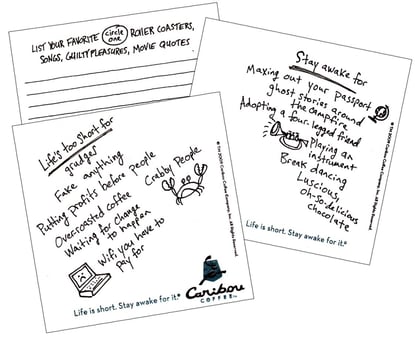 LIST YOUR FAVORITE circle one ROLLER COASTERS,
SONGS, GUILTY PLEASURES, MOVIE QUOTES
Stay awake for
Maxing out your passport
ghost stories around
the campfire
Adopting a four-legged friend
Playing an
instrument
Break dancing
Luscious,
Oh-so-delicious
chocolate
Life is short. Stay awake for it.®
Life's too short for
grudges
Fake anything
Putting profits before people
Crabby People
Overroasted coffee
Waiting for change
to happen
Wifi you have to
pay for
Life is short. Stay awake for it.®
Caribou
COFFEE